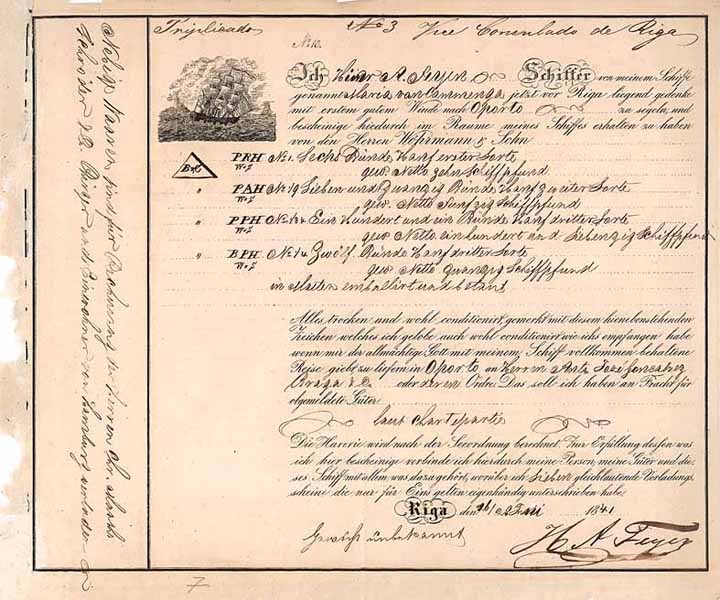 Triplicado No 3 Vice Consulado de Riga
No. 10.
Ich H. A. Feyer Schiffer von meinem Schiffe
genannt Maria van Cammenga jetzt vor Riga liegend gedenke
mit erstem gutem Winde nach Oporto zu segeln, und
bescheinige hiedurch im Raume meines Schiffes erhalten zu haben
von den Herren Wöhrmann & Sohn
PRH No 1. Sechs Bünde Hanf erster Sorte
gew. Netto zehn Schiffpfund
" PAH No 1/9 Sieben und Zwanzig Bünde Hanf zweiter Sorte
gew. Netto Funfzig Schiffpfund
" PPH Ein Hundert und ein Bünde Hanf dritter Sorte
gew. Netto einhundert und siebenzig Schiffpfund
" BPH No 1/4 Zwölf Bünde Hanf dritter Sorte
gew. Netto zwanzig Schiffpfund
in Matten emballirt und
Alles, trocken und wohl conditionirt, gemerkt mit diesem hienebenstehenden
Zeichen welches ich gelobe auch wohl conditionirt, wie ichs empfangen habe
wenn mir der allmächtige Gott mit meinem Schiff vollkommen behaltene
Reise giebt, zu liefern in Oporto an Herren
Braga & Co oder deren Ordre. Das soll ich haben an Fracht für
obgemeldete Güter
laut Chartepartie
Die Havarie wird nach der Seeordnung berechnet. Zur Erfüllung dessen was
ich hier bescheinige verbinde ich hierdurch meine Person, meine Güter und die-
ses Schiff mit allem, was dazu gehört, worüber ich sieben gleichlautende Verladungs-
scheine die nur für Eins gelten eigenhändig unterschrieben habe.
Riga den 1841
Gewicht unbekannt
H. A. Feyer
Nobige Waaren sind für Rechnung der Herren Chr. Matth.
Schröder & Co. Bürger und Einwohner von Hamburg verladen
7